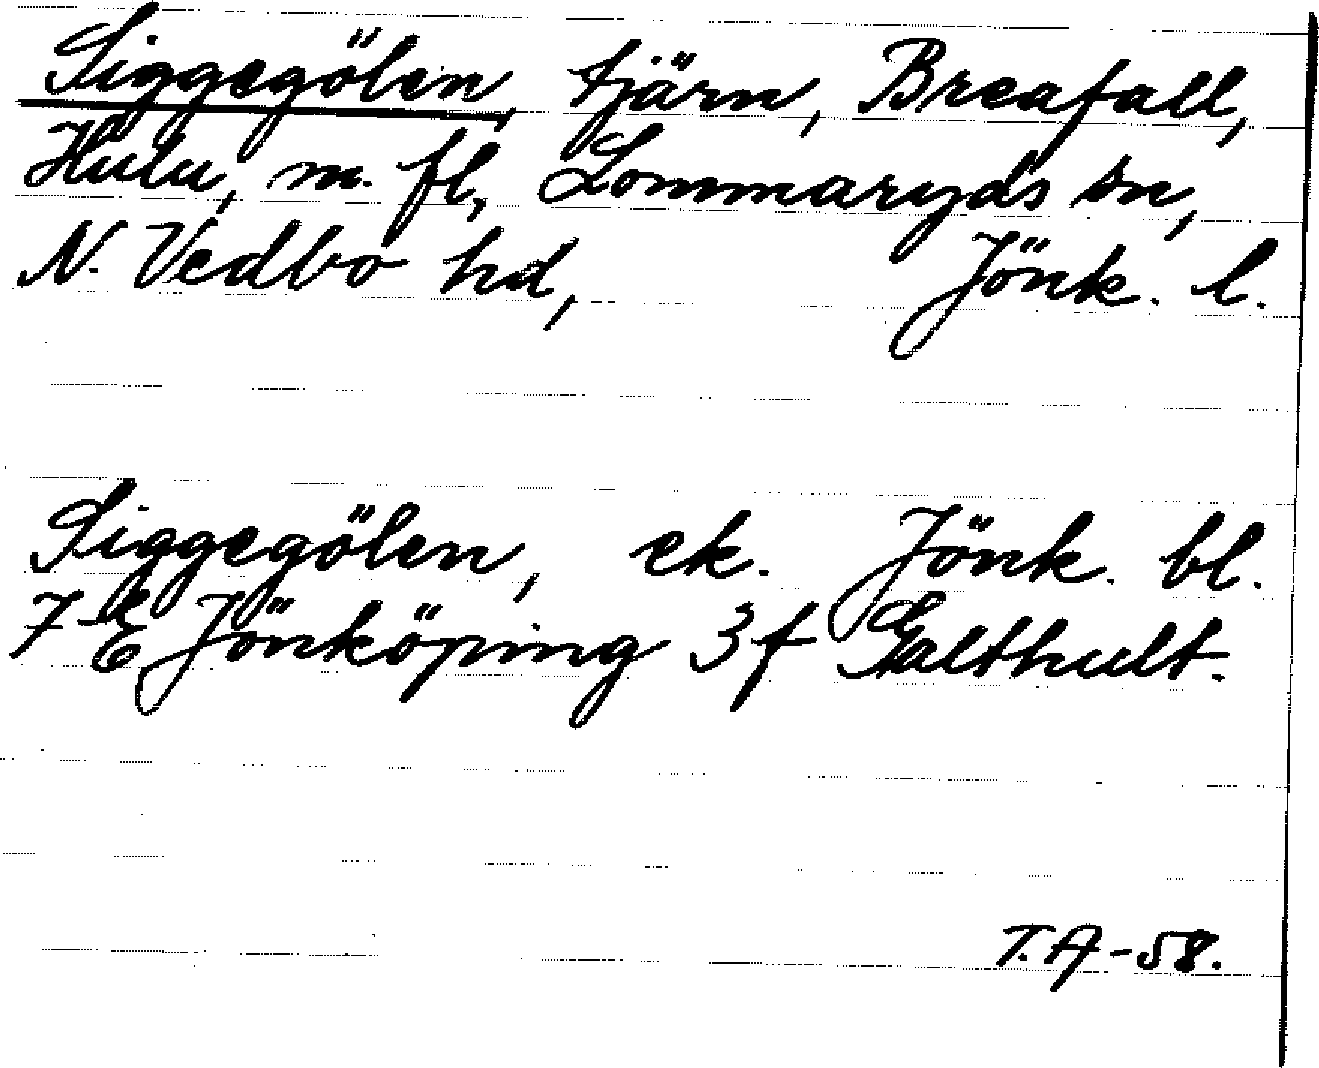 Siggegölen, tjärn, Breafall,
Hulu, m. fl, Lommaryds sn,
N. Vedbo hd, Jönk. l.
Siggegölen, ek. Jönk. bl.
7 E Jönköping 3f Galthult.
T.A-58.